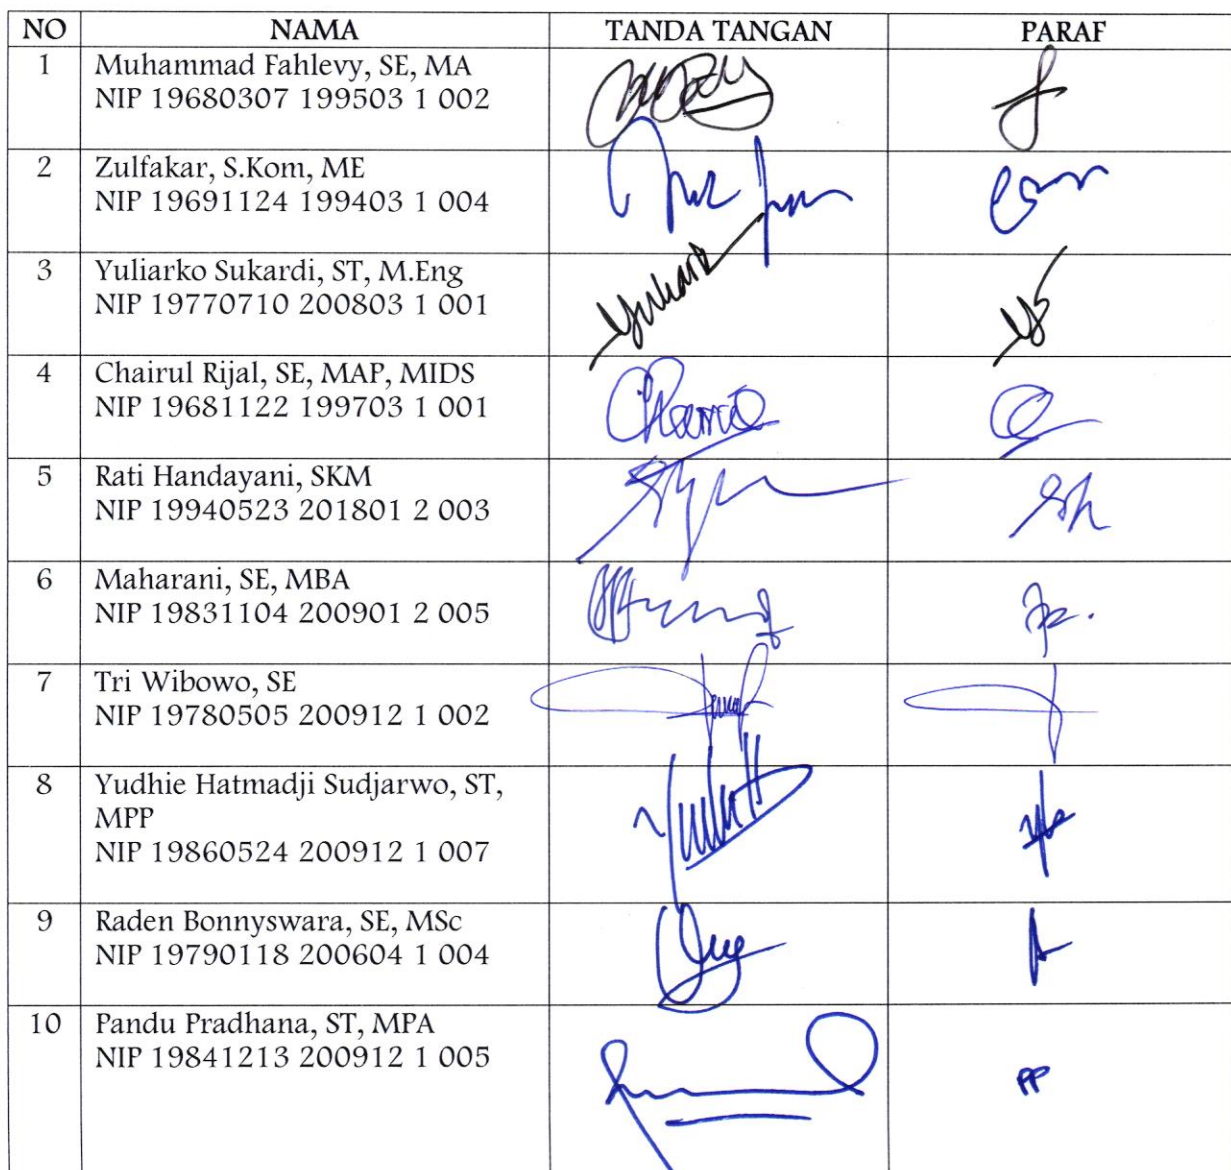 NO NAMA TANDA TANGAN PARAF
1 Muhammad Fahlevy, SE, MA
NIP 19680307 199503 1 002
2 Zulfakar, S.Kom, ME
NIP 19691124 199403 1 004
3 Yuliarko Sukardi, ST, M.Eng
NIP 19770710 200803 1 001
4 Chairul Rijal, SE, MAP, MIDS
NIP 19681122 199703 1 001
5 Rati Handayani, SKM
NIP 19940523 201801 2 003
6 Maharani, SE, MBA
NIP 19831104 200901 2 005
7 Tri Wibowo, SE
NIP 19780505 200912 1 002
8 Yudhie Hatmadji Sudjarwo, ST,
MPP
NIP 19860524 200912 1 007
9 Raden Bonnyswara, SE, MSc
NIP 19790118 200604 1 004
10 Pandu Pradhana, ST, MPA
NIP 19841213 200912 1 005
PP